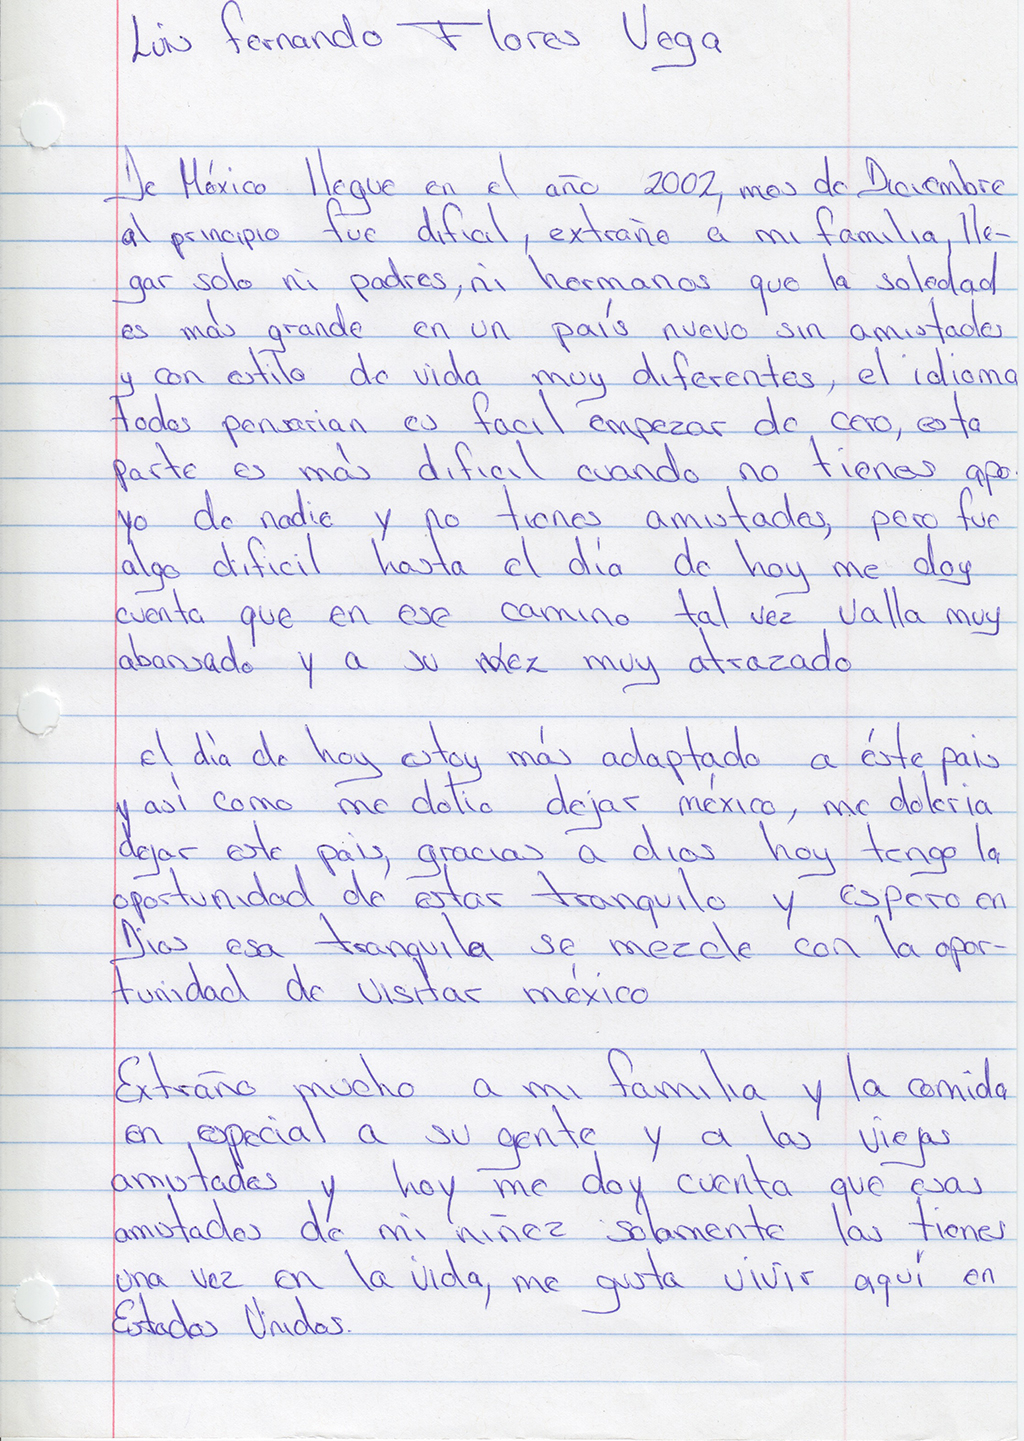 Luis fernando Flores Vega
De México llegue en el año 2002, mes de Diciembre
al principio fue dificil, extraño a mi familia, lle-
gar solo ni padres, ni hermanos que la soledad
es más grande en un país nuevo sin amistades
y con estilo de vida muy diferentes, el idioma
todos pensarian es facil empezar de cero, esta
parte es más dificil cuando no tienes apo-
yo de nadie y no tienes amistades, pero fue
algo dificil hasta el día de hoy me doy
cuenta que en ese camino tal vez valla muy
abansado y a su vez muy atrazado
el día de hoy estoy más adaptado a éste pais
y así como me dolio dejar méxico, me doleria
dejar este pais, gracias a dios hoy tengo la
oportunidad de estar tranquilo y espero en
Dios esa tranquila se mezcle con la opor-
tunidad de visitar méxico
Extraño mucho a mi familia y la comida
en especial a su gente y a las viejas
amistades y hoy me doy cuenta que esas
amistades de mi niñez solamente las tienes
una vez en la vida, me gusta vivir aquí en
Estados Unidos.